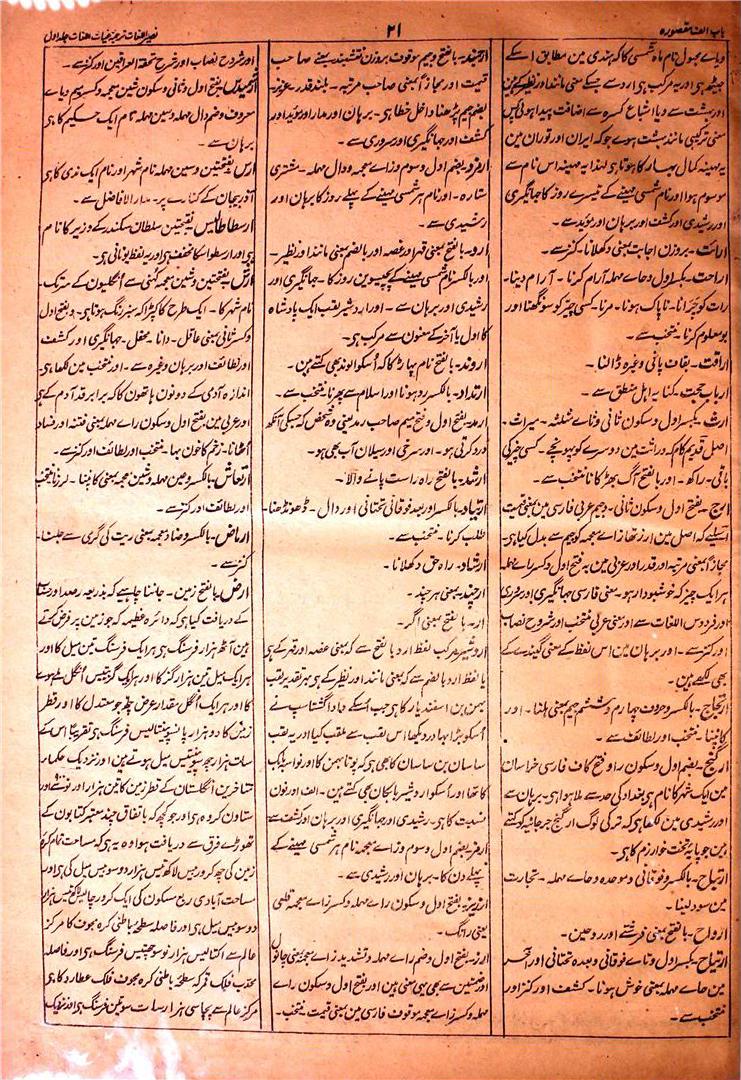 باب الف مقصورہ
۲۱
نصیر اللغات ترجمہ غیاث اللغات جلد اول
ویاے مجہول نام ماہ شمسی کا کہ ہندی مین مطابق اسکے
جیٹھ ہی اور یہ مرکب ہی ارد سے جسکے معنی مانند اور نظیر ہین
اور بہشت سے وبا اشباع کسرہ اضافت یا پیدا ہو گئی
معنی ترکیبی مانند بہشت ہوے چونکہ ایران اور توران مین
یہ مہینہ کمال بہار کا ہوتا ہو لہذا یہ مہینہ اس نام سے
موسوم ہوا اور نام شمسی مہینے کے تیسرے روز کا جہانگیری
اور رشیدی اور کشف اور برہان اور مؤید سے۔
ارائت۔ بروزن اجابت بمعنی دکھلانا۔ کنز سے۔
اراحت۔ بکسر اول وحاے مہملہ آرام کرنا۔ آرام دینا۔
رات کو چرانا۔ ناپاک ہونا۔ مرنا۔ کسی چیز کو سونگھنا اور
بو معلوم کرنا۔ منتخب سے۔
اراقت۔ بقاف پانی وغیرہ ڈالنا۔
ارباب حجت۔ کنایہ اہل منطق سے۔
ارث۔ بکسر اول وسکون ثانی وثاے مثلثہ۔ میراث۔
اصل قدیم کام کہ وراثت مین دوسرے کو پہونچے۔ کسی چیز کی
باقی۔ راکھ۔ اور بالفتح آگ بھڑکانا منتخب سے۔
ارج۔ بفتح اول وسکون ثانی۔ وجیم عربی فارسی مین بمعنی قیمت
اسلیے کہ اصل مین ارز تھا زاے معجمہ کو جیم سے بدل کیا ہی۔
مجازاً بمعنی مرتبہ اور قدر اور عربی مین بہ فتح اول وکسر راے مہملہ
ہر ایک چیز کہ خوشبودار ہو۔ معنی فارسی جہانگیری اور سروری
اور فردوس اللغات سے اور معنی عربی منتخب اور شروح نصاب
اور کنز سے۔ اور برہان مین اس لفظ کے معنی گینڈے کے
بھی لکھے ہین۔
ارتجاج۔ بالکسر وحرف چہارم وششم جیم بمعنی ہلنا۔ اور
کانپنا۔ منتخب اور لطائف سے۔
ارگنج۔ بضم اول وسکون را وفتح کاف فارسی خراسان
مین ایک شہر کا نام ہی بغداد کی حد سے ملا ہوا ہی۔ برہان سے
اور رشیدی مین لکھا ہی کہ ترکی لوگ ارگنج جرجانیہ کو کہتے
ہین جو پایہ تخت خوارزم کا ہی۔
ارتباح۔ بالکسر وفوقانی وموحدہ وحاے مہملہ۔ تجارت
مین سود لینا۔
ارواح۔ بالفتح بمعنی فرشتے اور روحین۔
ارتیاح۔ بکسر اول وتاے فوقانی وبعدہ تحتانی اور آخر
مین حاے مہملہ بمعنی خوش ہونا۔ کشف اور کنز اور
منتخب سے۔
ارجمند۔ بالفتح وجیم موقوف بروزن نقشبند بمعنے صاحب
قیمت اور مجازاً بمعنی صاحب مرتبہ۔ بلند قدر۔ عزیز۔
بضم جیم پڑھنا داخل خطا ہی۔ برہان اور مدار اور مؤید اور
کشف اور جہانگیری اور سروری سے۔
ارمزد بضم اول وسوم وزاے معجمہ ودال مہملہ۔ مشتری
ستارہ۔ اور نام ہر شمسی مہینے کے پہلے روز کا برہان اور
رشیدی سے۔
ارد۔ بالفتح بمعنی قہر اور غصہ اور بالضم بمعنی مانند اور نظیر۔
اور بالکسر نام شمسی مہینے کے پچیسوین روز کا۔ جہانگیری اور
رشیدی اور برہان سے۔ اور اردشیر لقب ایک بادشاہ
کا اول یا آخر کے معنون سے مرکب ہی۔
اروند۔ بالفتح نام پہاڑ کا کہ اُسکو الوند بھی کہتے ہین۔
ارتداد۔ بالکسر رد ہونا اور اسلام سے پھرنا۔ منتخب سے۔
ارمد۔ بفتح اول وفتح میم صاحب رمد یعنی وہ شخص کہ جسکی آنکھ
درد کرتی ہو۔ اور سرخی اور سیلان آب بھی ہو۔
ارشد۔ بالفتح راہ راست پانے والا۔
ارتیاد۔ بالکسر اور بعد فوقانی تحتانی اور دال۔ ڈھونڈھنا۔
طلب کرنا۔ منتخب سے۔
ارشاد۔ راہ حق دکھلانا۔
ارچند۔ بمعنی ہر چند۔
ار۔ بالفتح بمعنی اگر۔
اردشیر مرکب لفظ ارد بالفتح سے کہ بمعنی غصہ اور قہر کے ہی
یا لفظ ارد بالضم سے کہ بمعنی مانند اور نظیر کے ہی بہر تقدیر لقب
بہمن بن اسفندیار کا ہی جب اُسکے دادا گشتاسپ نے
اُسکو بڑا بہادر دیکھا اس لقب سے ملقب کیا اور یہ لقب
ساسان بن ساسان کا بھی ہی کہ پوتا بہمن کا اور نواسہ بابک
کا تھا اور اُسکو اردشیر بابکان بھی کہتے ہین۔ الف اور نون
نسبت کا ہی۔ رشیدی اور جہانگیری اور برہان اور کشف سے
ارمز بضم اول وسوم وزاے معجمہ نام ہر شمسی مہینے کے
پہلے دن کا۔ برہان اور رشیدی سے۔
ارزیز بفتح اول وسکون راے مہملہ وکسر زاے معجمہ قلعی
یعنی رانگ۔
ارز۔ بفتح اول وضم راے مہملہ وتشدید زاے معجمہ بمعنی چانول
اور ضمتین سے بھی یہی معنی ہین اور بفتح اول وسکون راے
مہملہ وکسر زاے معجمہ موقوف فارسی مین بمعنی قیمت منتخب۔
اور شروح نصاب اور شرح تحفۃ العراقین اور کنز سے۔
ارشمیدس بفتح اول وثانی وسکون شین معجمہ وکسر میم ویاے
معروف وضم دال مہملہ وسین مہملہ نام ایک حکیم کا ہی
برہان سے۔
ارس بفتحتین وسین مہملہ نام شہر اور نام ایک ندی کا ہی
آذربیجان کے کنارے پر۔ مدار الافاضل سے۔
ارسطاطالیس بفتحتین سلطان سکندر کے وزیر کا نام
ہی اور ارسطو اسکا مخفف ہی اور یہ لفظ یونانی ہی۔
ارش بفتحتین وشین معجمہ کہنی سے اُنگلیون کے سر تک۔
نام شہر کا۔ ایک طرح کا کپڑا کہ سبز رنگ ہوتا ہی۔ وبفتح اول
وکسر ثانی بمعنی عاقل۔ دانا۔ عقل۔ جہانگیری اور کشف
اور لطائف اور برہان وغیرہ سے۔ اور منتخب مین لکھا ہی۔
اندازہ آدمی کے دونون ہاتھون کا کہ برابر قد آدم کے ہی
اور عربی مین بفتح اول وسکون راے مہملہ بمعنی فتنہ اور فساد
اُٹھانا۔ زخم کا خون بہا۔ منتخب اور لطائف اور کنز سے۔
ارتعاش۔ بالکسر وعین مہملہ وشین معجمہ بمعنی کانپنا۔ لرزنا منتخب
اور لطائف اور کنز سے۔
ارماض۔ بالکسر وضاد معجمہ بمعنی ریت کی گرمی سے جلنا۔
کنز سے۔
ارض۔ بالفتح زمین۔ جاننا چاہیے کہ بذریعہ رصد اور حساب
کے دریافت کیا ہی کہ دائرہ عظیمہ کہ جو زمین پر فرض کرتے
ہین آٹھ ہزار فرسنگ ہی ہر ایک فرسنگ تین میل کا اور
ہر ایک میل تین ہزار گز کا اور ہر ایک گز بتیس اُنگل کا ہے
اور ہر ایک اُنگل مقدار عرض چھ جو معتدل کا اور قطر
زمین کا دو ہزار پانسو پینتالیس فرسنگ ہی تقریباً اس کے
سات ہزار چھ سو پینتیس میل ہوتے ہین اور نزدیک حکماء
متاخرین انگلستان کے قطر زمین کا تین ہزار اور نوسی اور
ستاون کروہ ہی اور جو کچھ کہ باتفاق چند معتبر کتابون کے
تھوڑے فرق سے دریافت ہوا وہ یہ ہی کہ مساحت تمام کرہ
زمین کی چھ کرور بیس لاکھ تیس ہزار دو سو بیس میل کی ہی اور
مساحت آبادی ربع مسکون کی ایک کرور چالیس لاکھ تیس ہزار
دو سو بیس میل ہی اور فاصلہ سطح باطنی کرہ مجوف کا مرکز
عالم سے اکتالیس ہزار نو سو چھتیس فرسنگ ہی اور فاصلہ
محدب فلک قمر کہ سطح باطنی کرہ مجوف فلک عطارد کا ہی
مرکز عالم سے پچاسی ہزار سات سو تین فرسنگ ہی اور نزدیک